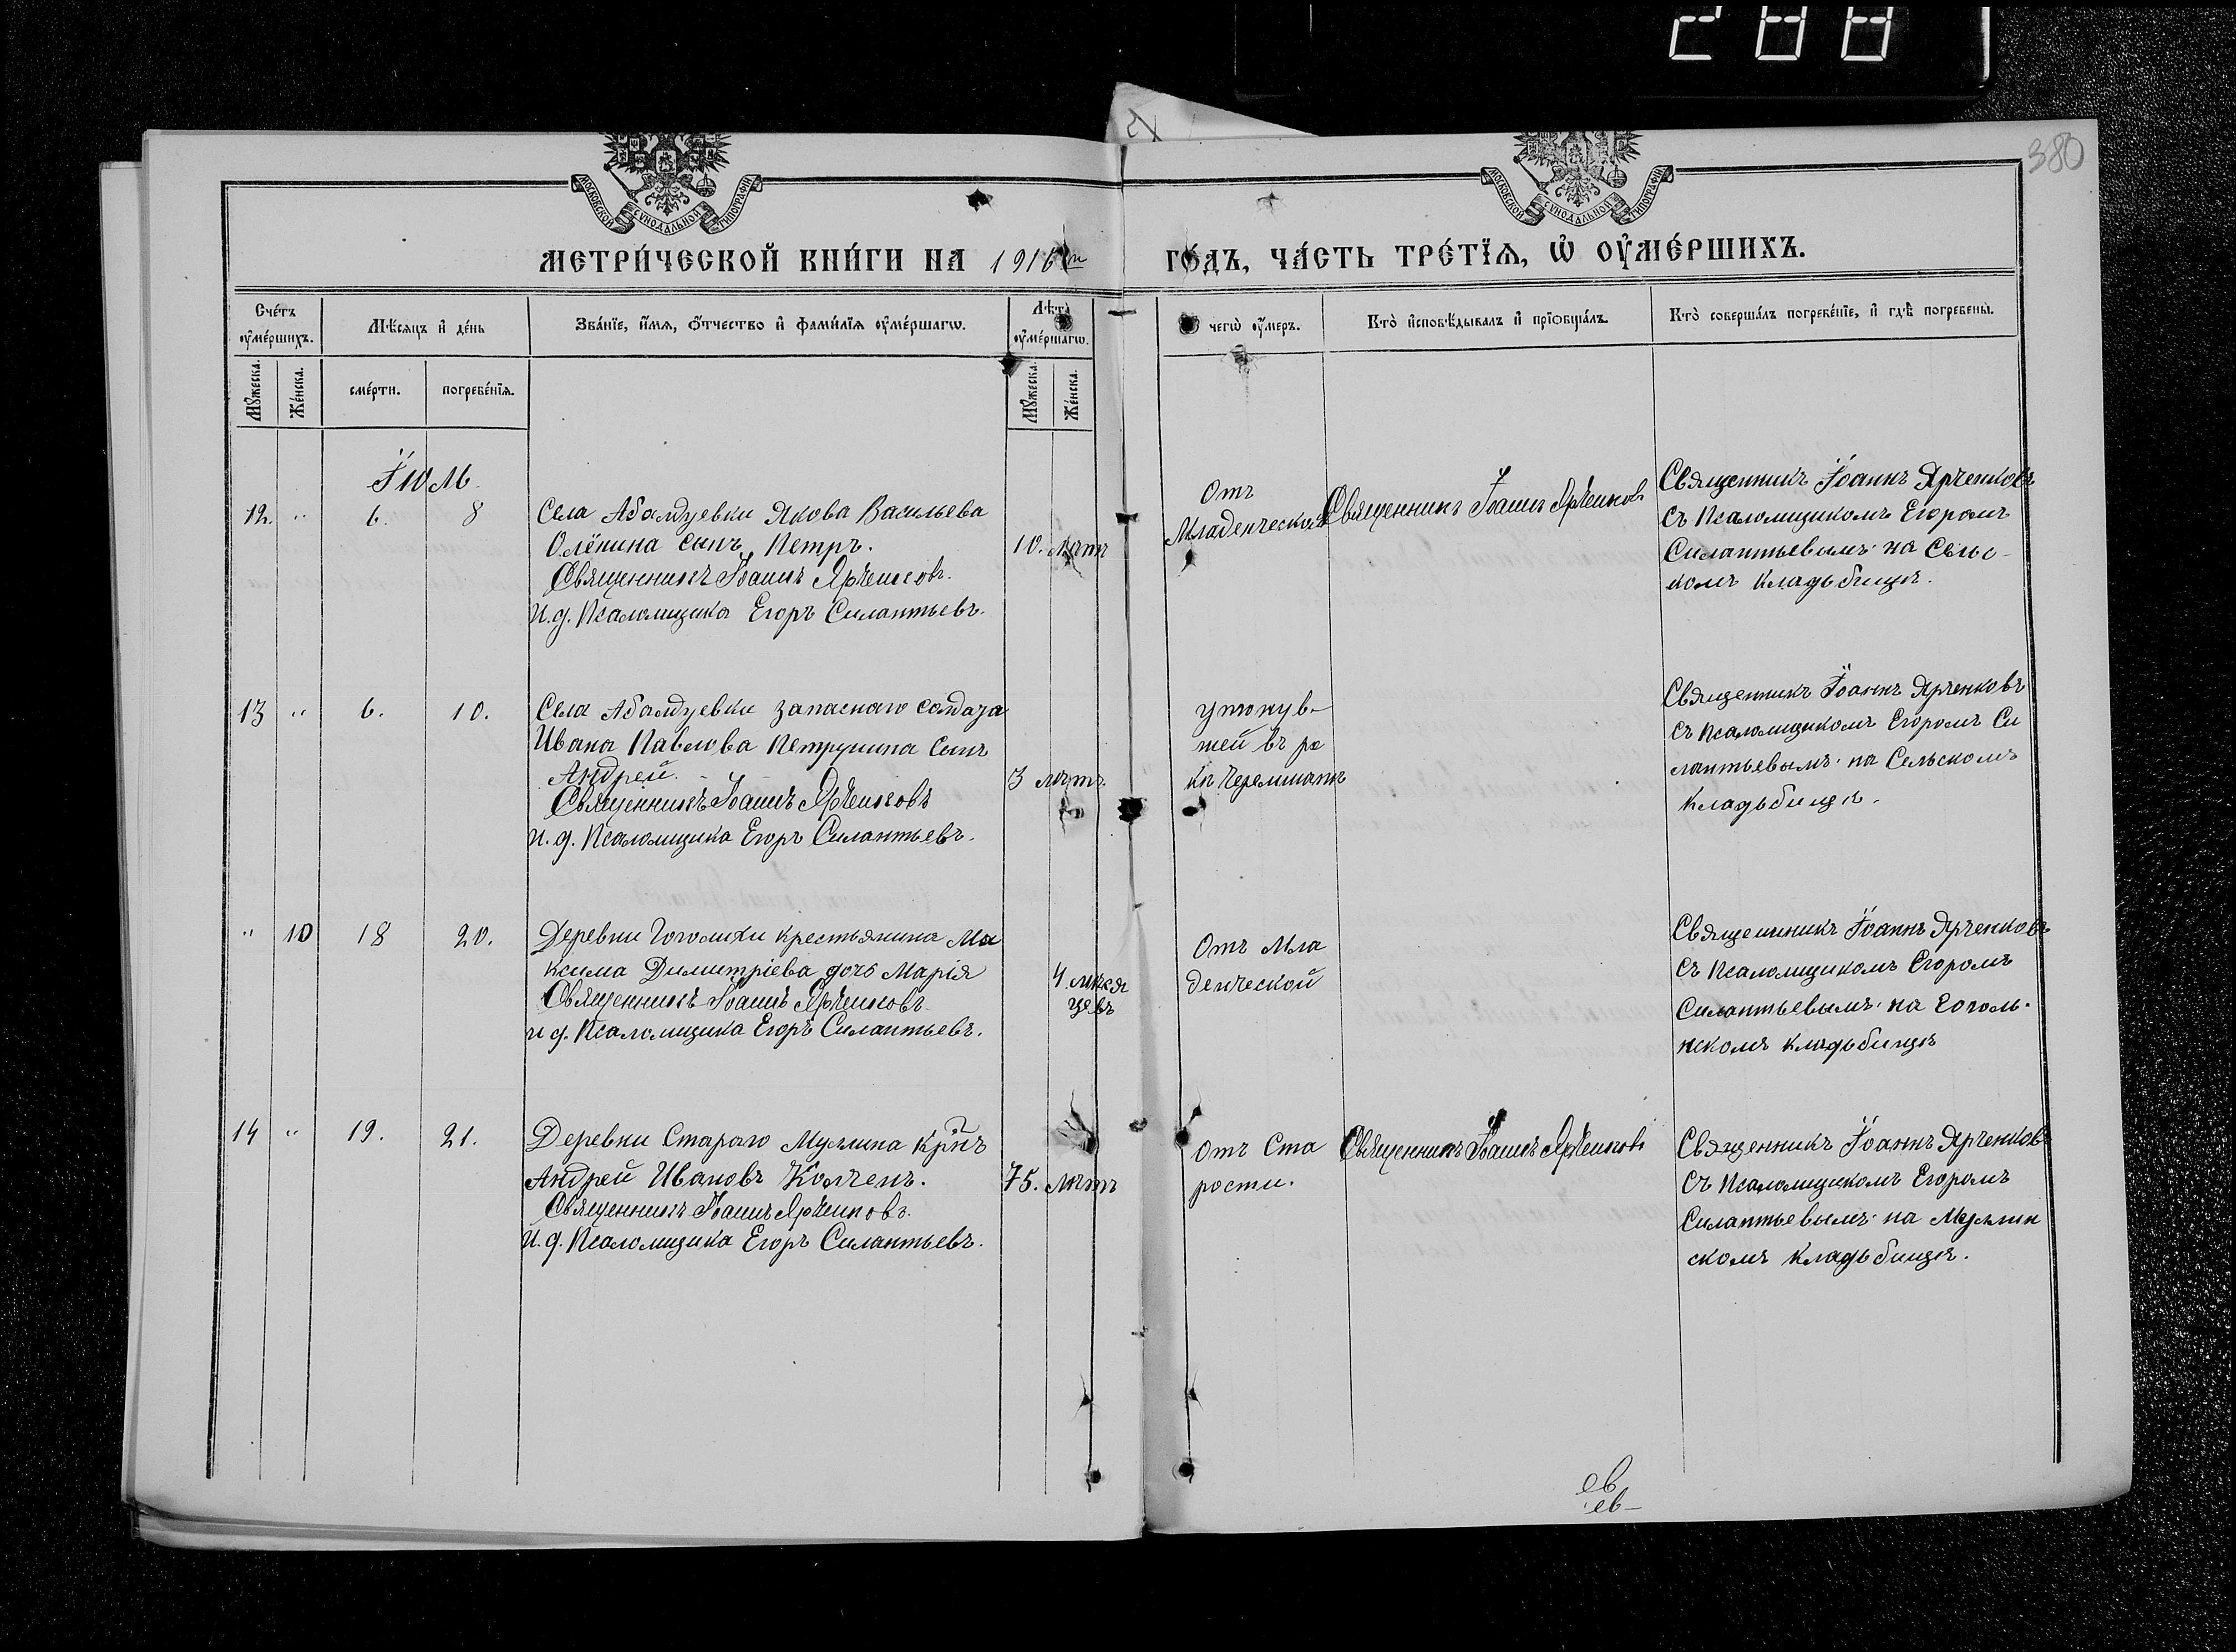 288
380
МОСКОВСКОЙ СѴНОДАЛЬНОЙ ТИПОГРАФІИ
МОСКОВСКОЙ СѴНОДАЛЬНОЙ ТИПОГРАФІИ
МЕТРИ́ЧЕСКОЙ КНИ́ГИ НА 1916 й ГО́ДЪ, ЧА́СТЬ ТРЕ́ТЇѦ, Ѡ҆ ОУ҆МЕ́РШИХЪ.
Сче́тъ оу҆ме́ршихъ.
Мѣ́сяцъ и҆ де́нь
Зва́нїе, и҆́мѧ, ѻ҆́тчество и҆ фами́лїѧ оу҆ме́ршагѡ.
Лѣ́та оу҆ме́ршагѡ.
чегѡ̀ оу҆́меръ.
Кто̀ и҆сповѣ́дывалъ и҆ прїѡбща́лъ.
Кто̀ соверша́лъ погребе́нїе, и҆ гдѣ̀ погребены̀.
Мꙋ́жеска.
Же́нска.
сме́рти.
погребе́нїѧ.
Мꙋ́жеска.
Же́нска.
Іюль
12. " 6. 8
Села Абалдуевки Якова Васильева
Олёнина сынъ Петръ.
Священникъ Іоаннъ Ярченковъ.
И.д. Псаломщика Егоръ Силантьевъ.
10. лѣтъ
Отъ
Младенческой
Священникъ Іоаннъ Ярченковъ
Священникъ Іоаннъ Ярченковъ
съ Псаломщикомъ Егоромъ
Силантьевымъ на Сельс-
комъ кладьбищѣ.
13 " 6. 10.
Села Абалдуевки запаснаго солдата
Ивана Павлова Петрунина сынъ
Андрей.
Священникъ Іоаннъ Ярченковъ
И.д. Псаломщика Егоръ Силантьевъ.
3 лѣтъ.
утонув-
шей въ ре
кѣ Черемшанѣ
Священникъ Іоаннъ Ярченковъ
съ Псаломщикомъ Егоромъ Си
лантьевымъ на Сельскомъ
кладьбищѣ.
" 10 18 20.
Деревни Гоголихи крестьянина Ма
ксима Димитріева дочь Марія
Священникъ Іоаннъ Ярченковъ
и д. Псаломщика Егоръ Силантьевъ.
4 мѣся
цевъ
Отъ Мла
денческой
Священникъ Іоаннъ Ярченковъ
съ Псаломщикомъ Егоромъ
Силантьевымъ на Гоголь-
нскомъ кладьбищѣ
14 " 19. 21.
Деревни Стараго Муллина кр̃нъ
Андрей Ивановъ Колченъ.
Священникъ Іоаннъ Ярченковъ.
И.д. Псаломщика Егоръ Силантьевъ.
75. лѣтъ
Отъ Ста
рости.
Священникъ Іоаннъ Ярченковъ
Священникъ Іоаннъ Ярченковъ
съ Псаломщикомъ Егоромъ
Силантьевымъ на Муллин
скомъ кладьбищѣ.
ев
ев-